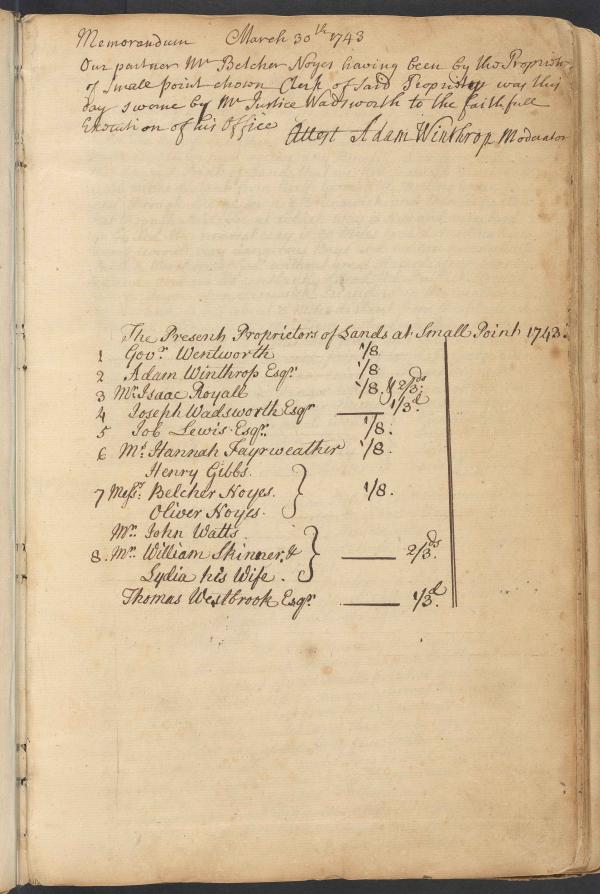 Memorandum March 30th 1743
Our partner Mr Belcher Noyes having been by the Proprietors
of Small point chosen Clerk of said Propriety was this
day sworne by Mr Justice Wadsworth to the faithfull
Execution of his Office Attest Adam Winthrop Moderator
The Present Proprietors of Lands at Small Point 1743:
1 Govr. Wentworth 1/8
2 Adam Winthrop Esqr. 1/8
3 Mr. Isaac Royall 1/8. 2/3ds
4 Joseph Wadsworth Esqr 1/3d
5 Job Lewis Esqr. 1/8.
6 Ms. Hannah Fayrweather 1/8.
Henry Gibbs.
7 Messrs. Belcher Noyes. 1/8.
Oliver Noyes.
Mr. John Watts
8. Mr. William Skinner &
2/3ds.
Lydia his Wife.
Thomas Westbrook Esqr. 1/3d.